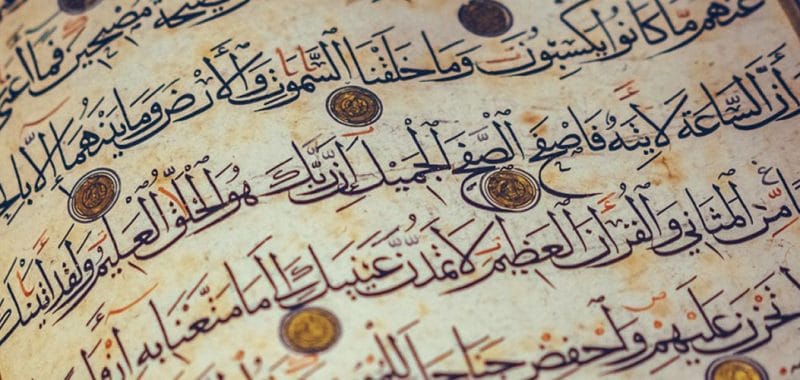 صيحة مصبحين فما أغنى
عنهم ما كانوا يكسبون وما خلقنا السموت والأرض وما بينهما إلا
أن الساعة لآتية فاصفح الصفح الجميل إن ربك هو الخلق العليم ولقد آتينك
من المثاني والقرآن العظيم لا تمدن عينيك إلى ما متعنا به
تحزن عليهم واخفض جناحك